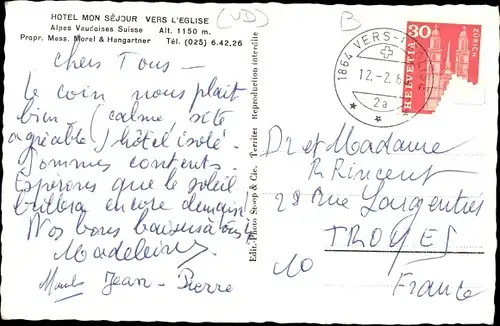 HOTEL MON SÉJOUR VERS L'EGLISE
Alpes Vaudoises Suisse Alt. 1150 m.
Propr. Mess. Morel & Hangartner Tél. (025) 6.42.26
(VD)
B
Chers Tous -
Le coin nous plait
bien - (calme, site
agréable) hôtel isolé.
Sommes contents
Espérons que le soleil
brillera encore demain!
Nos bons baisers à tous
Madeleine
Jean-Pierre
Edit. Photo Stoop & Cie. Territet Reproduction interdite
1864 VERS-L'
12.-2.6
2a
30
HELVETIA
ZÜRICH
Dr et Madame
R Rincent
28 Rue Largentier
TROYES
10
France